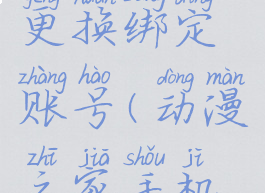 gēng huàn bǎng dìng
更换绑定
zhàng hào dòng màn
账号(动漫
zhī jiā shǒu jī
之家手机